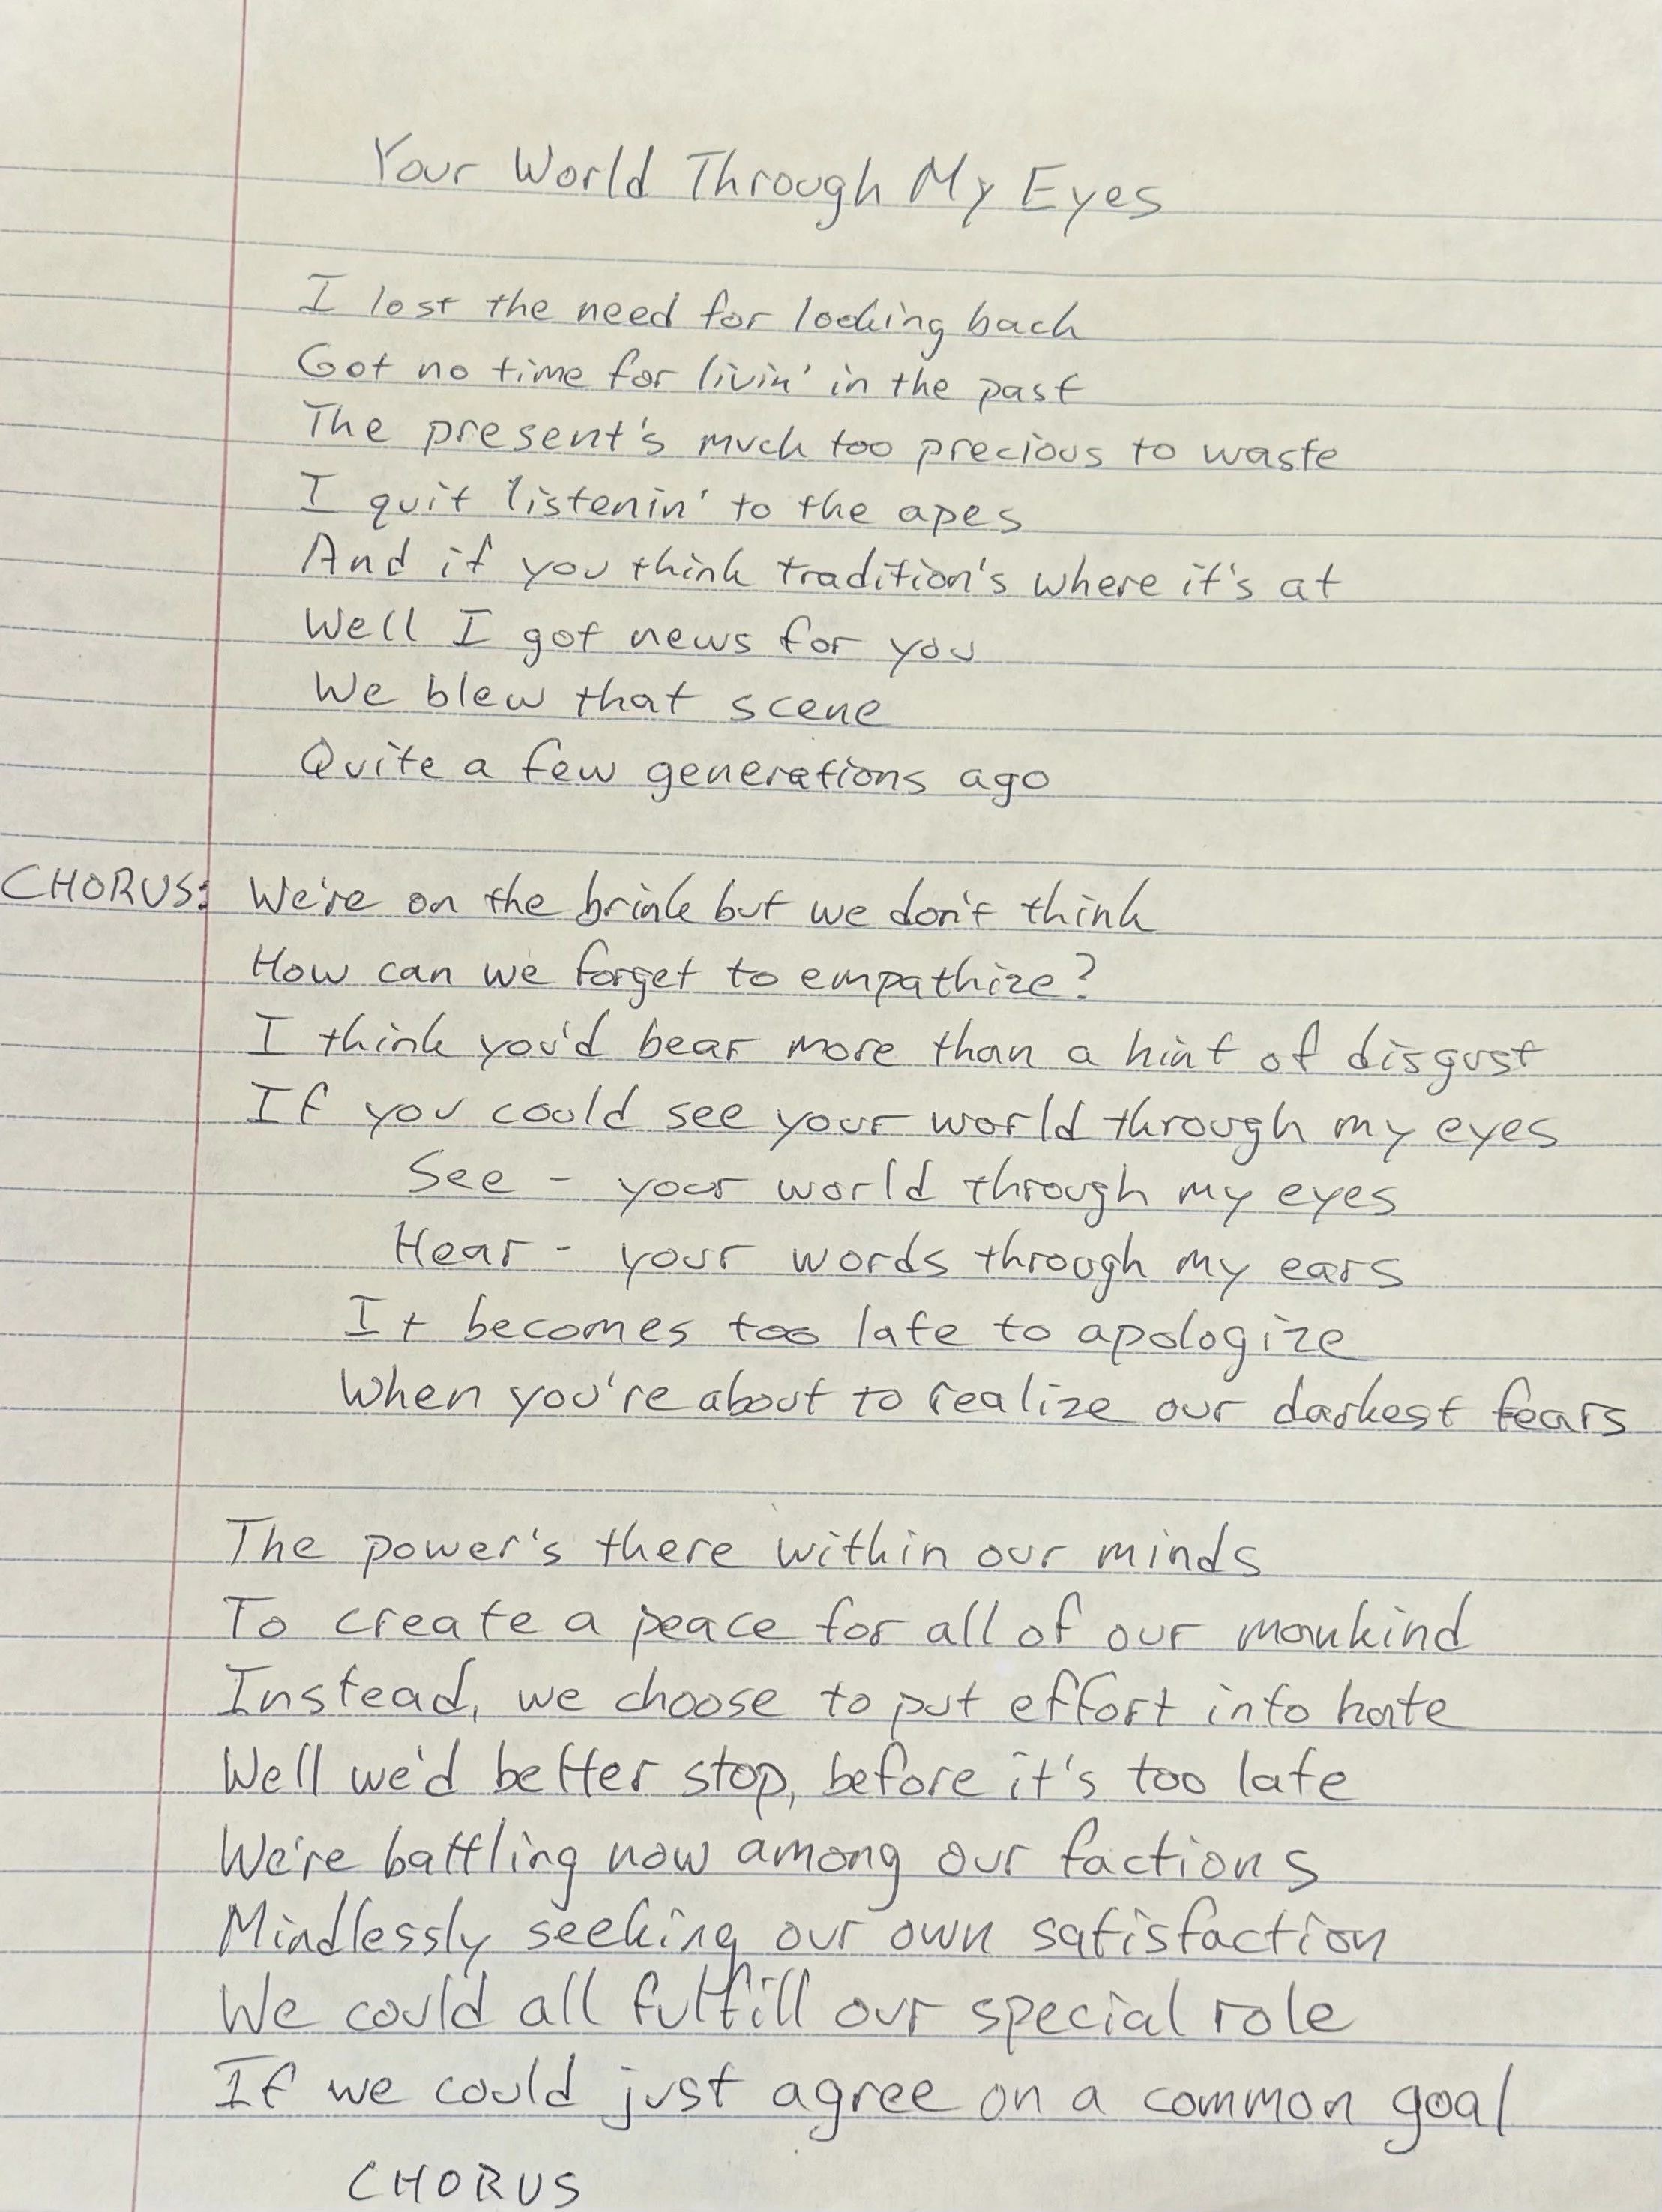 Your World Through My Eyes
I lost the need for looking back
Got no time for livin' in the past
The present's much too precious to waste
I quit listenin' to the apes
And if you think tradition's where it's at
Well I got news for you
We blew that scene
Quite a few generations ago
CHORUS: We're on the brink but we don't think
How can we forget to empathize?
I think you'd bear more than a hint of disgust
If you could see your world through my eyes
See - your world through my eyes
Hear - your words through my ears
It becomes too late to apologize
When you're about to realize our darkest fears
The power's there within our minds
To create a peace for all of our mankind
Instead, we choose to put effort into hate
Well we'd better stop, before it's too late
We're battling now among our factions
Mindlessly seeking our own satisfaction
We could all fulfill our special role
If we could just agree on a common goal
CHORUS